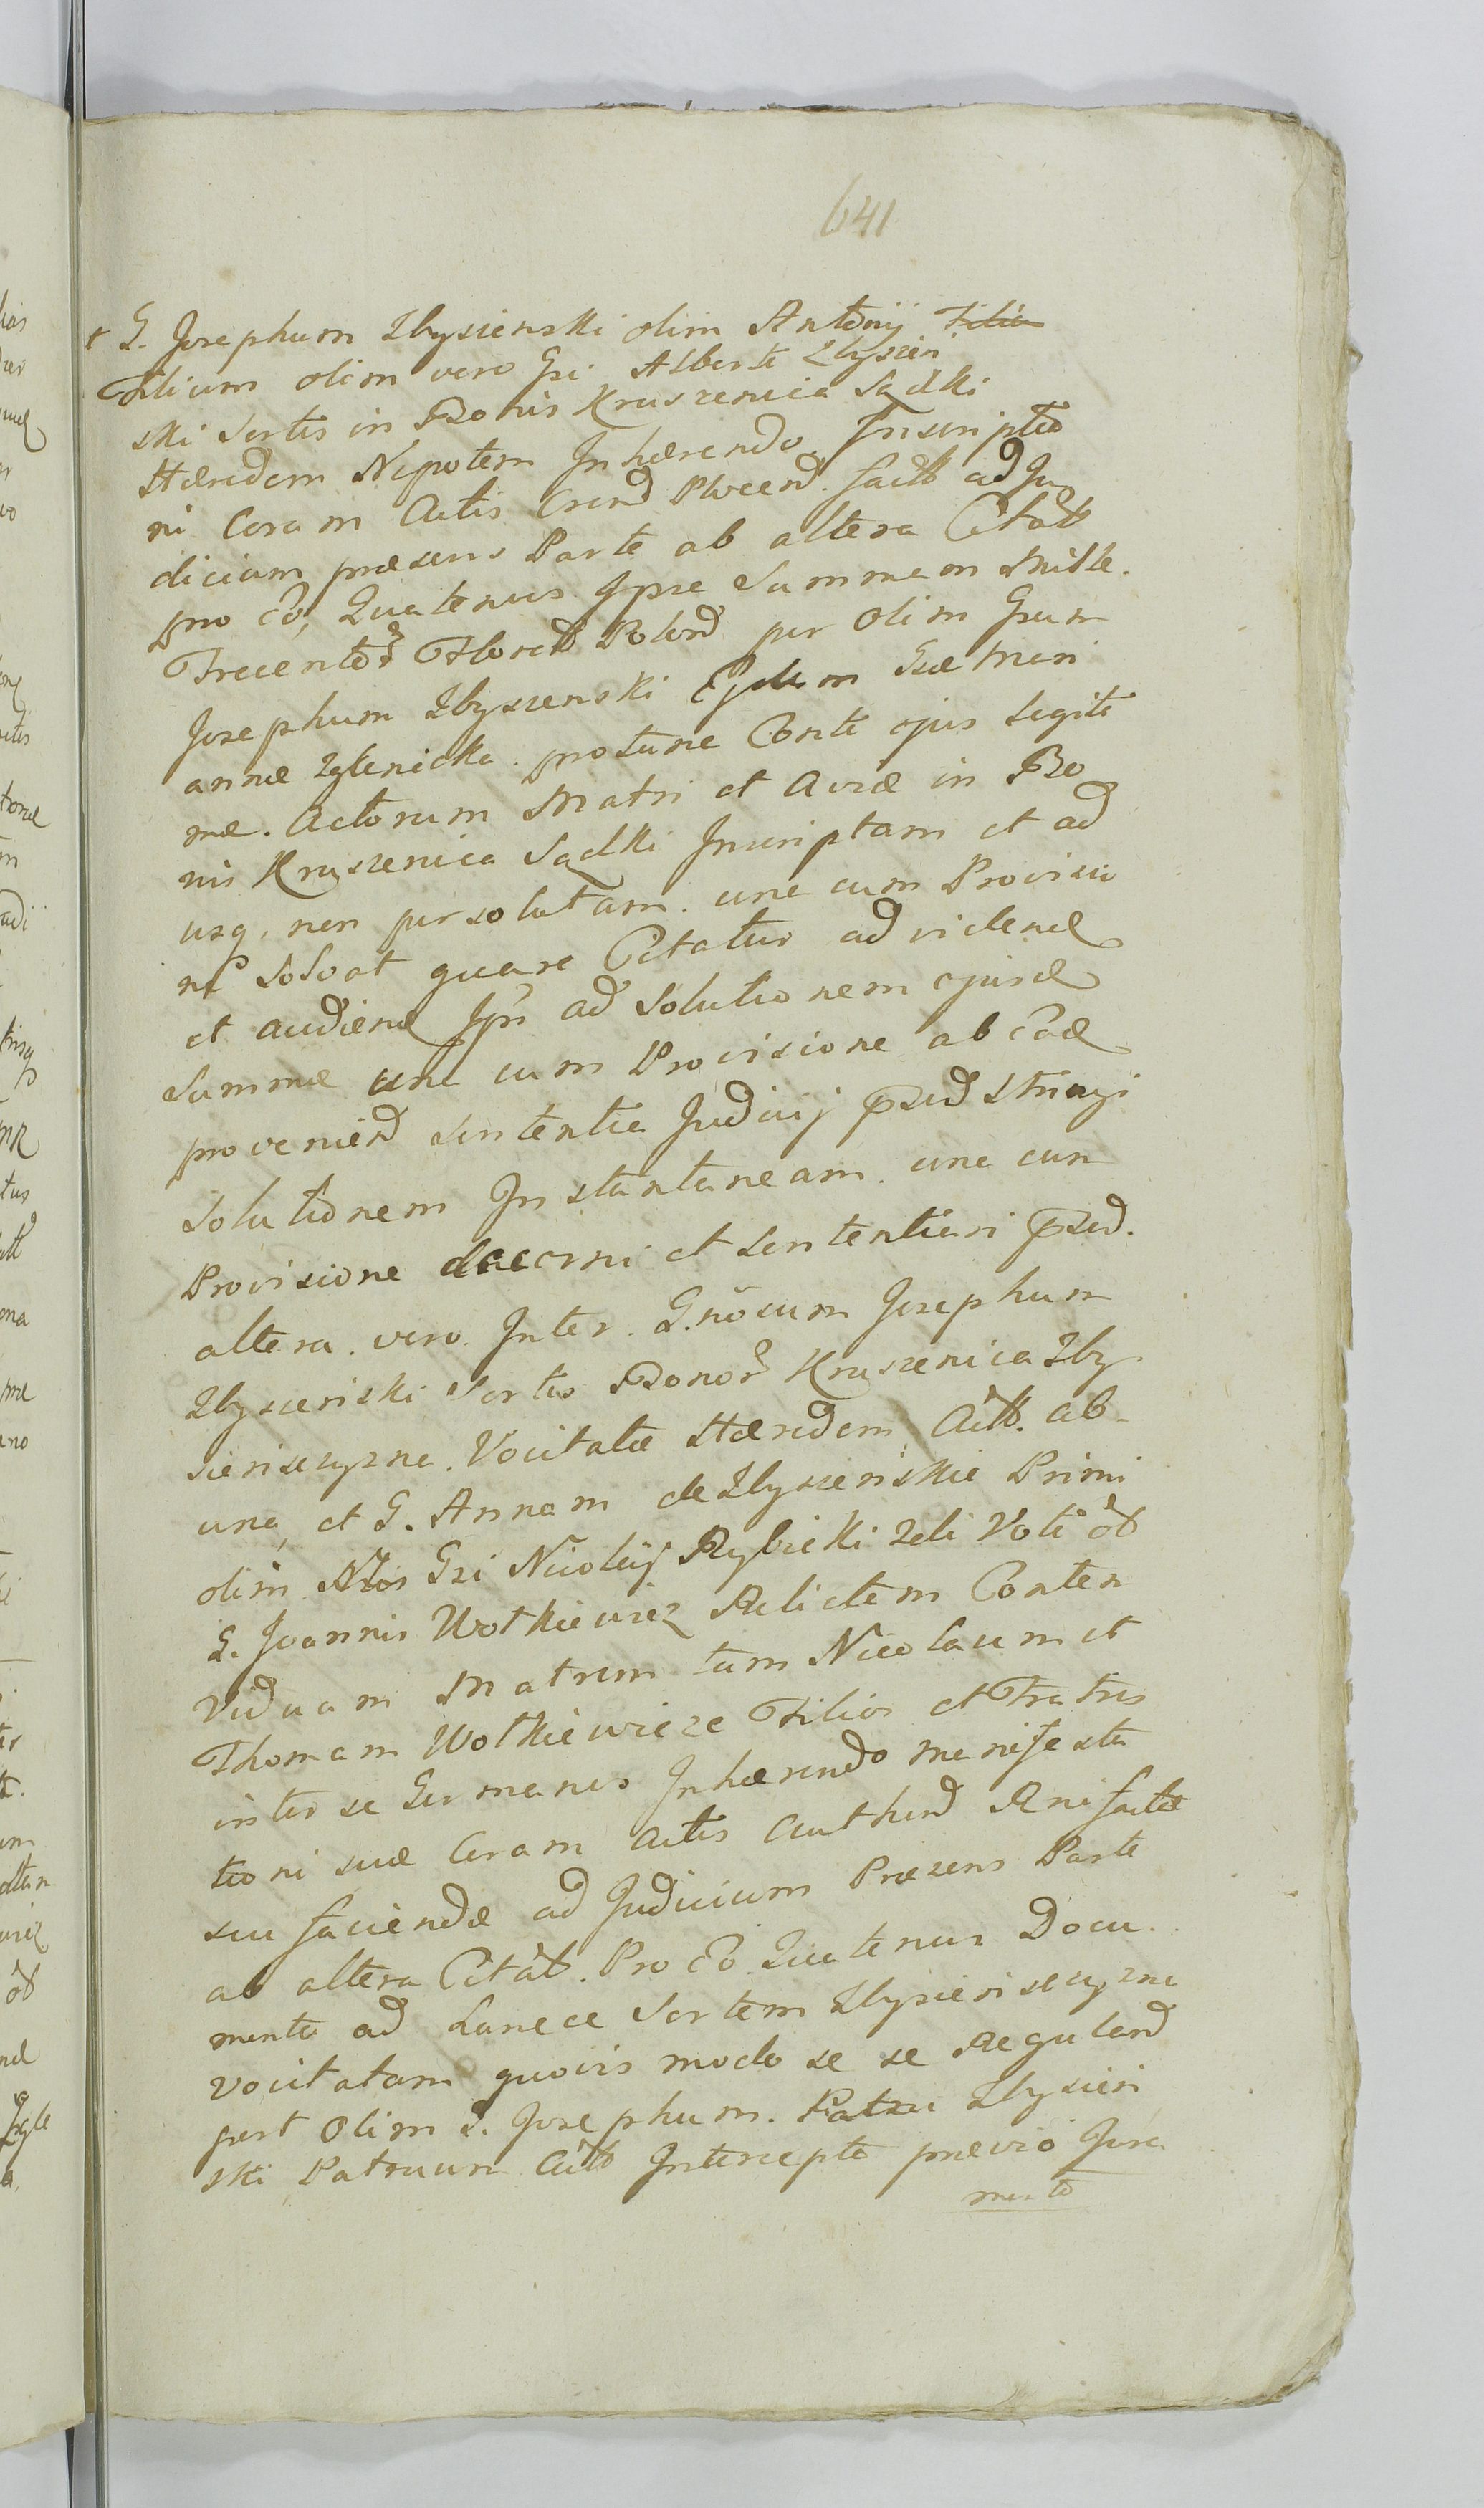 641
G. Josephum Zbyszenski olim Antonij
Filium olim vero Gsi Alberti Zbyszen
ski Sortis in Bonis Kruszenica Sądki
Hæredem Nepotem Inhærendo Inscriptio
ni Coram Actis Crend Ploceen. factæ ad Ju
dicium præsens Parte ab altera Citat
pro eo, Quatenus Ipse Summam Mille.
Trecentor Floren Polond per olim Gsum
Josephum Zbyszenski Gsæ Mari
annæ Zglenicka. protunc Conte ejus Legiti
mæ. Actorum Matri et Aviæ in Bo
nis Kruszenica Sądki Inscriptam et ad
usq, non persolutam. una cum Provisio
ne Solvat quare Citatur ad videnđ
et audienđ Ipm ad Solutionem ejusđ
Summæ una cum Provisione ab Eađ
provenienđ Sententia Judicij Stringi
Solutionem Instantaneam. una cum
Provisione decerni et Sententiari
altera. vero. Inter. Gnosum Josephum
Zbyszenski Sortis Bonor Kruszenica Zby
sienszczyzna. Vocitatæ Hæredem Act. ab
una, et G. Annam de Zbyszenskie Primi
olim Gsi Nicolaij Rybicki 2di Voti
G. Joannis Wotkiewicz Relictam Conten
Viduam Matrem tum Nicolaum et
Thomam Wotkiewicze Filios et Fratres
inter se Germanos Inhærendo manifesta
tioni suæ Coram Actis Authend factæ
seu faciendæ ad Judicium Præsens Parte
ab altera Citat. Pro Eo Quatenus Docu
menta ad Sortem Zbysienszczyzna
vocitatam quovis modo se se Reguland
post Olim G. Josephum. Zbysien
ski Patruum Act Intercepta prævio Jura
mento